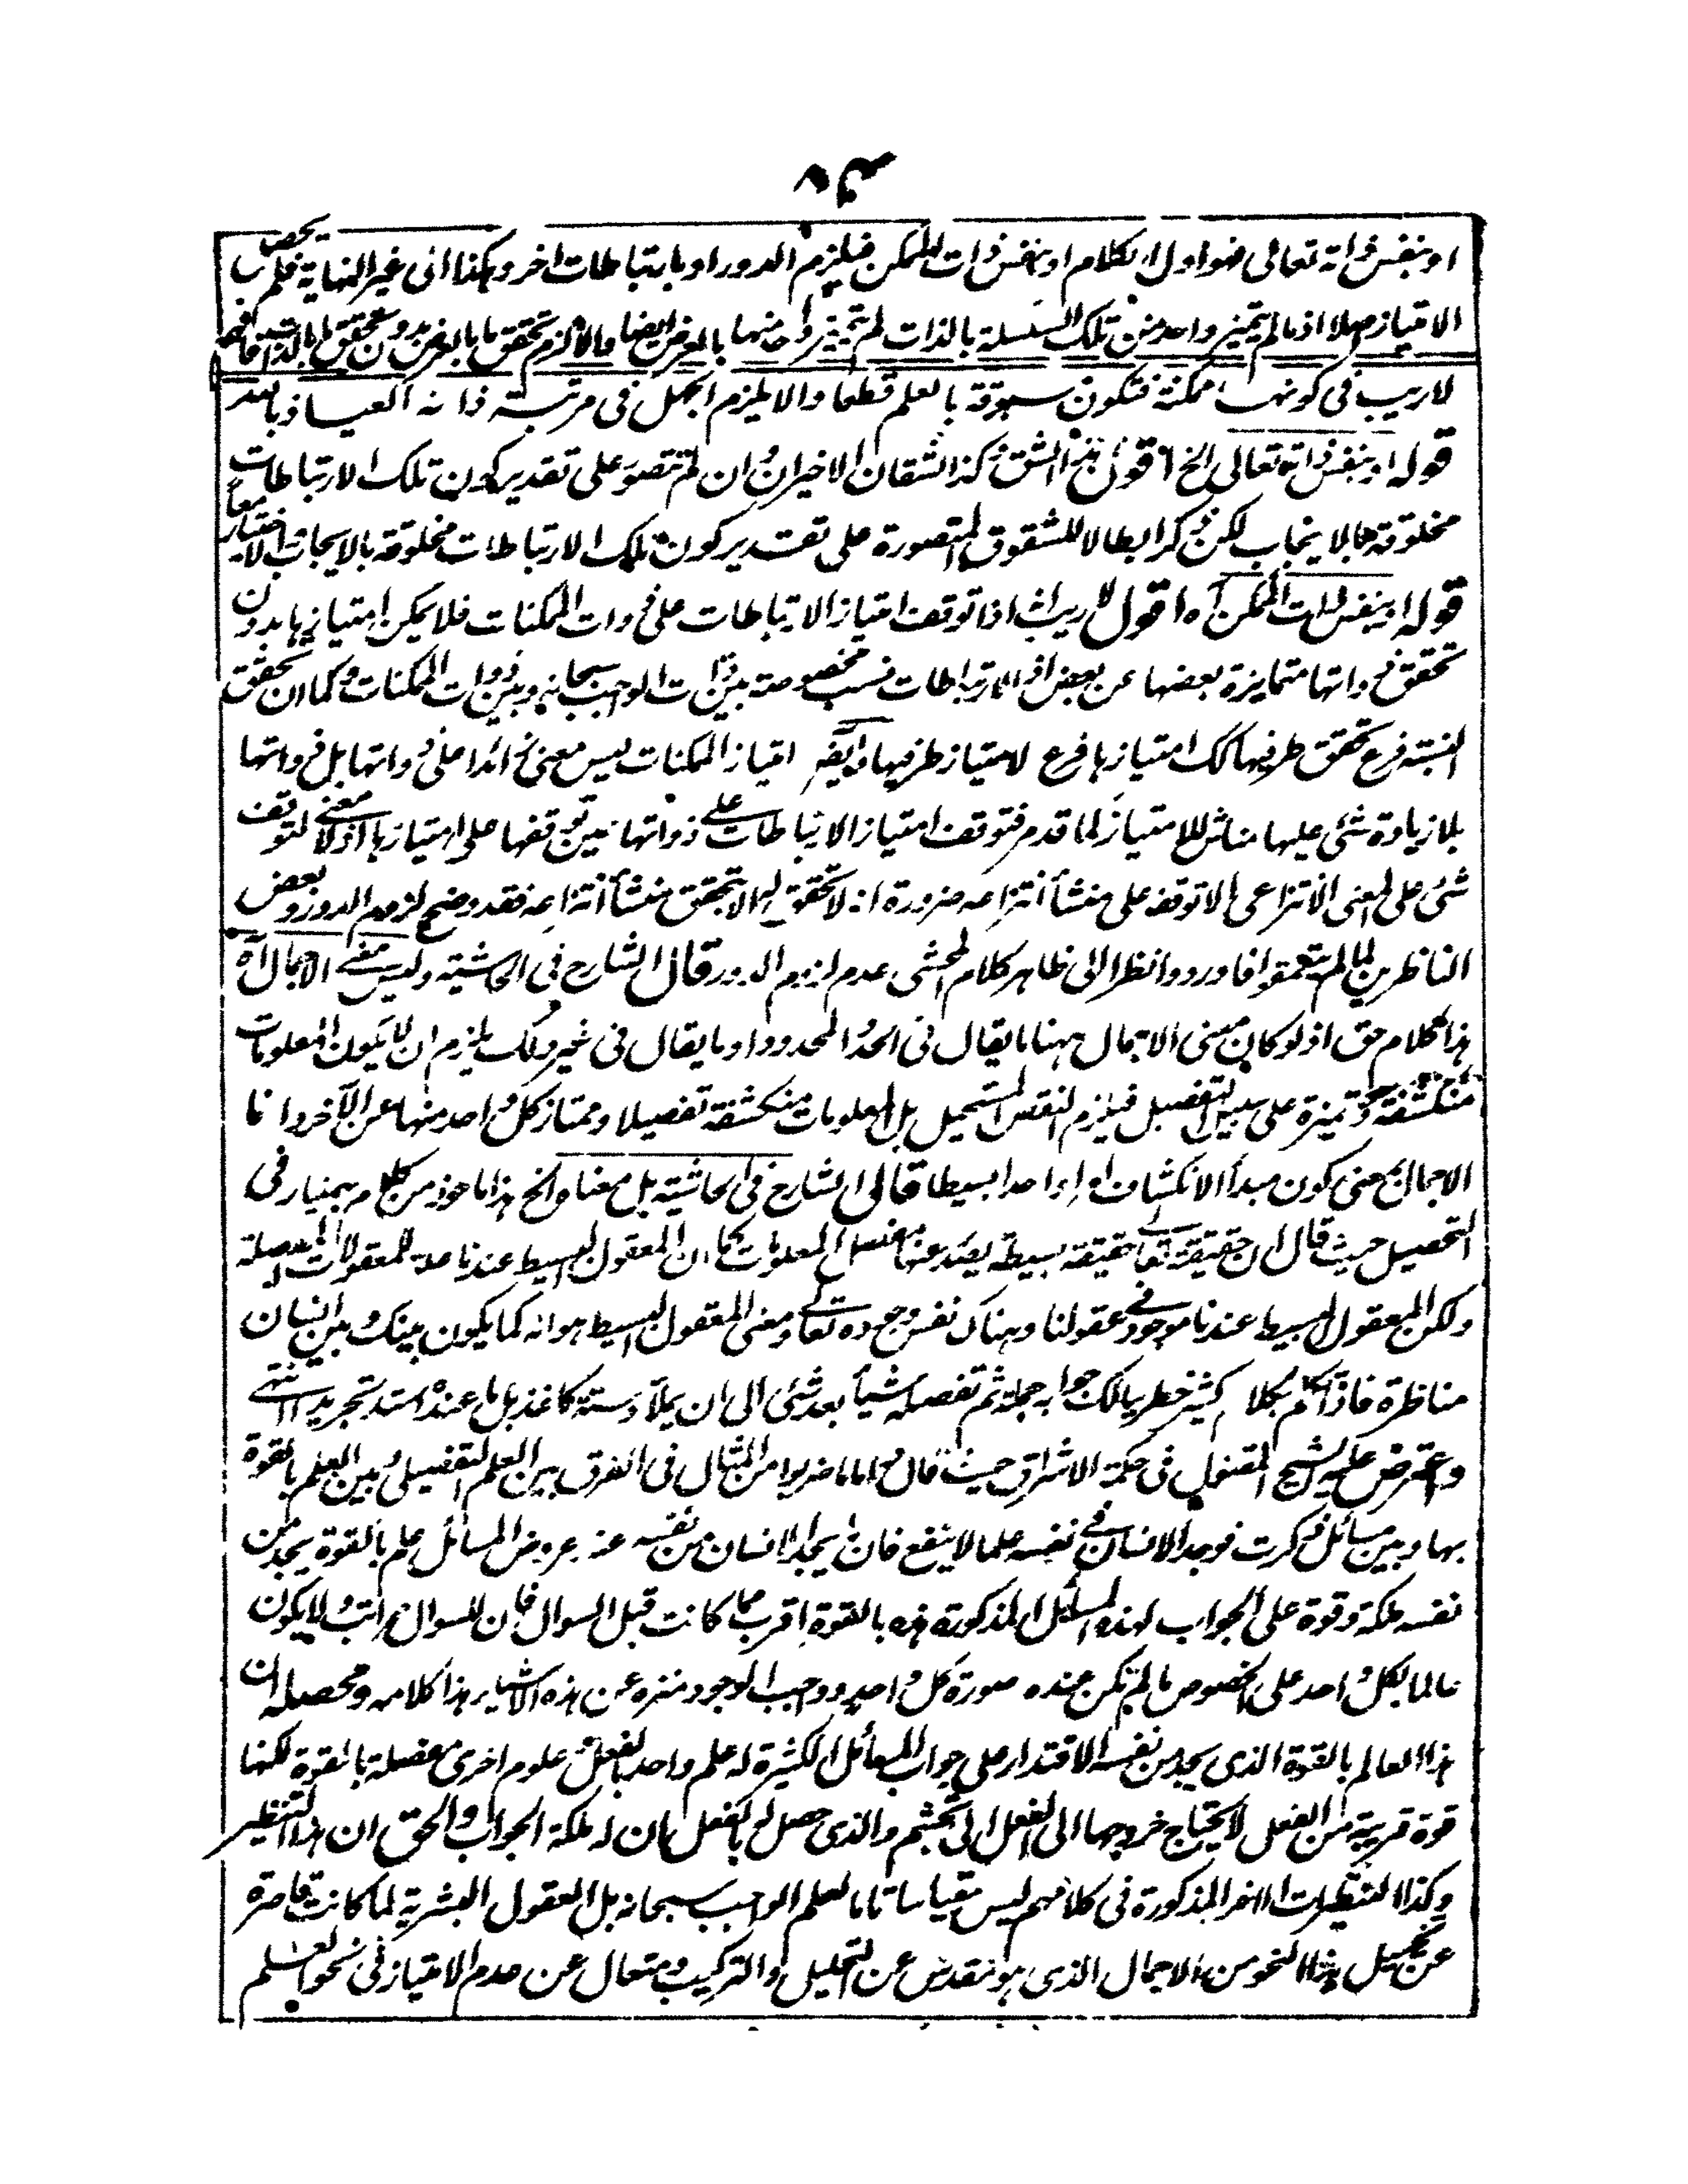 او بنفس ذاته تعالى فهو اول الكلام او بنفس ذات الممكن فيلزم الدور او بارتباطات اخر وهكذا الى غير النهاية فلم يحصل
الامتياز اصلا اذ ما لم يتميز واحد من تلك السلسلة بالذات لم يتميز واحد منها بالعرض ايضا والا لزم تحقق ما بالعرض بدون تحقق ما بالذات فافهم
لا ريب فى كونها ممكنة فتكون مسبوقة بالعلم قطعا والا يلزم الجهل فى مرتبة ذاته العياذ بالله
قوله او بنفس ذاته تعالى الخ اقول هذا الشق وكذا الشقان الاخيران وان لم تتصور على تقدير كون تلك الارتباطات
مخلوقة بالايجاب لكن ذكر ابطالا للشقوق المتصورة على تقدير كون تلك الارتباطات مخلوقة بالايجاب والاختيار معا
قوله او بنفس ذات الممكن اه اقول لا ريب انه اذا توقف امتياز الارتباطات على ذوات الممكنات فلا يمكن امتيازها بدون
تحقق ذواتها متمايزة بعضها عن بعض اذ الارتباطات نسب مخصوصة بين ذات الواجب سبحانه وبين ذوات الممكنات وكما ان تحقق
النسبة فرع تحقق طرفيها كك امتيازها فرع لامتياز طرفيها وايضا امتياز الممكنات ليس معنى زائدا على ذواتها بل ذواتها
بلا زيادة شئ عليها مناش للامتياز لما قدم فتوقف امتياز الارتباطات على ذواتها عين توقفها على امتيازها اذ لا معنى لتوقف
شئ على المعنى الانتزاعى الا توقفه على منشأ انتزاعه ضرورة انه لا تحقق له الا بتحقق منشأ انتزاعه فقد وضح لزوم الدور وبعض
الناظرين لما لم يتعمقوا فاوردوا نظرا الى ظاهر كلام المحشى عدم لزوم الدور قال الشارح فى الحاشية وليس معنى الاجمال اه
هذا كلام حق اذ لو كان معنى الاجمال ههنا ما يقال فى الحد والمحدود او ما يقال فى غير ذلك يلزم ان لا يكون المعلومات
منكشفة متميزة على سبيل التفصيل فيلزم النقص المستحيل بل المعلومات منكشفة تفصيلا وممتاز كل واحد منها عن الآخر وانما
الاجمال بمعنى كون مبدأ الانكشاف امرا واحدا بسيطا قال الشارح فى الحاشية بل معناه الخ هذا ماخوذ من كلام بهمنيار فى
التحصيل حيث قال ان حقيقته تعالى حقيقة بسيطة يصدر عنها مفصل المعلومات كما ان المعقول البسيط عندنا علة للمعقولات المفصلة
ولكن المعقول البسيط عندنا موجود فى عقولنا وهناك نفس وجوده تعالى ومعنى المعقول البسيط هو انه كما يكون بينك وبين انسان
مناظرة فاذا تكلم بكلام كثير خطر ببالك جوابه جملة ثم تفصله شيأ بعد شئ الى ان يملأ دستة كاغذ بل ما عنده اشد تجريد انتهى
واعترض عليه الشيخ المقتول فى حكمة الاشراق حيث قال واما ما ضربوا من المثال فى الفرق بين العلم التفصيلى وبين العلم بالقوة
بها وبين مسائل ذكرت فوجد الانسان فى نفسه علما لا ينفع فان ما يجد الانسان من نفسه عند عروض المسائل علم بالقوة يجد من
نفسه ملكة وقوة على الجواب لهذه المسائل المذكورة هذه بالقوة اقرب مما كانت قبل السوال فان للسوال مراتب ولا يكون
عالما بكل واحد على الخصوص ما لم تكن عنده صورة كل واحد وواجب الوجود منزه عن هذه الاشياء هذا كلامه ومحصله ان
هذا العالم بالقوة الذى يجد من نفسه الاقتدار على جواب المسائل الكثيرة له علم واحد بالفعل علوم اخرى مفصلة بالقوة لكنها
قوة قريبة من الفعل لا يحتاج خروجها الى الفعل الى تجشم والذى حصل له بالفعل بان له ملكة الجواب والحق ان هذا التنظير
وكذا التنظيرات الاخر المذكورة فى كلامهم ليس مقياسا تاما لعلم الواجب سبحانه بل العقول البشرية لما كانت قاصرة
عن تحصيل هذا النحو من الاجمال الذى هو تقدس عن التحليل والتركيب ومتعال عن عدم الامتياز فى نحو العلم